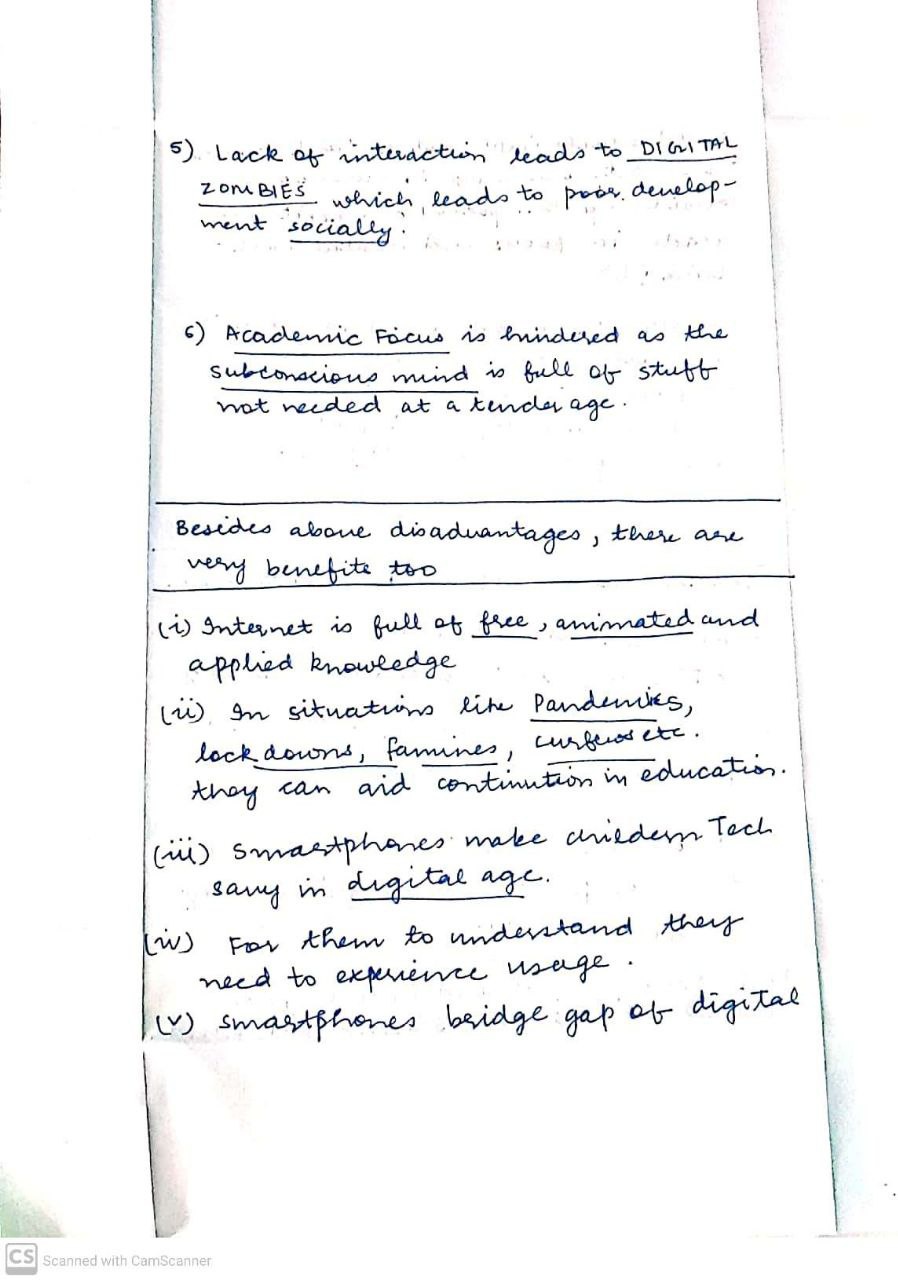 5) Lack of interaction leads to DIGITAL
ZOMBIES which leads to poor develop-
ment socially.
6) Academic Focus is hindered as the
subconscious mind is full of stuff
not needed at a tender age.
Besides above disadvantages, there are
very benefits too
(i) Internet is full of free, animated and
applied knowledge
(ii) In situations like Pandemics,
lockdowns, famines, curfews etc.
they can aid continution in education.
(iii) Smartphones make childern Tech
savy in digital age.
(iv) For them to understand they
need to experience usage.
(v) smartphones bridge gap of digital
CS Scanned with CamScanner